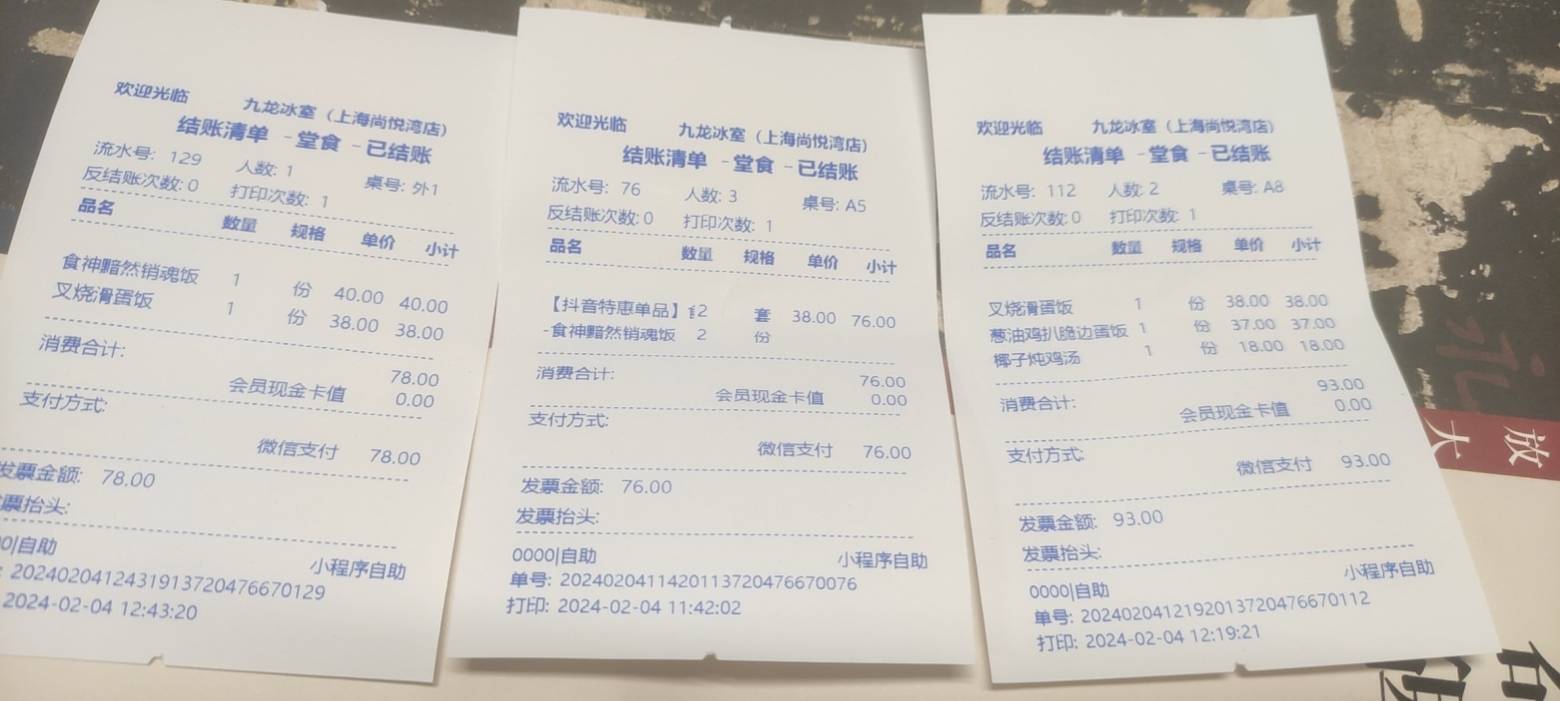 欢迎光临
九龙冰室（上海尚悦湾店）
结账清单 -堂食 -已结账
流水号: 129 人数: 1 桌号: 外1
反结账次数: 0 打印次数: 1
品名 数量 规格 单价 小计
食神黯然销魂饭 1 份 40.00 40.00
叉烧滑蛋饭 1 份 38.00 38.00
消费合计: 78.00
会员现金卡值 0.00
支付方式:
微信支付 78.00
发票金额: 78.00
发票抬头:
0|自助 小程序自助
: 20240204124319137204766​70129
2024-02-04 12:43:20
欢迎光临
九龙冰室（上海尚悦湾店）
结账清单 -堂食 -已结账
流水号: 76 人数: 3 桌号: A5
反结账次数: 0 打印次数: 1
品名 数量 规格 单价 小计
【抖音特惠单品】 2 套 38.00 76.00
-食神黯然销魂饭 2 份
消费合计: 76.00
会员现金卡值 0.00
支付方式:
微信支付 76.00
发票金额: 76.00
发票抬头:
0000|自助 小程序自助
单号: 2024020411420113720476670076
打印: 2024-02-04 11:42:02
欢迎光临
九龙冰室（上海尚悦湾店）
结账清单 -堂食 -已结账
流水号: 112 人数: 2 桌号: A8
反结账次数: 0 打印次数: 1
品名 数量 规格 单价 小计
叉烧滑蛋饭 1 份 38.00 38.00
葱油鸡扒脆边蛋饭 1 份 37.00 37.00
椰子炖鸡汤 1 份 18.00 18.00
消费合计: 93.00
会员现金卡值 0.00
支付方式:
微信支付 93.00
发票金额: 93.00
发票抬头:
0000|自助 小程序自助
单号: 2024020412192013720476670112
打印: 2024-02-04 12:19:21
放
大